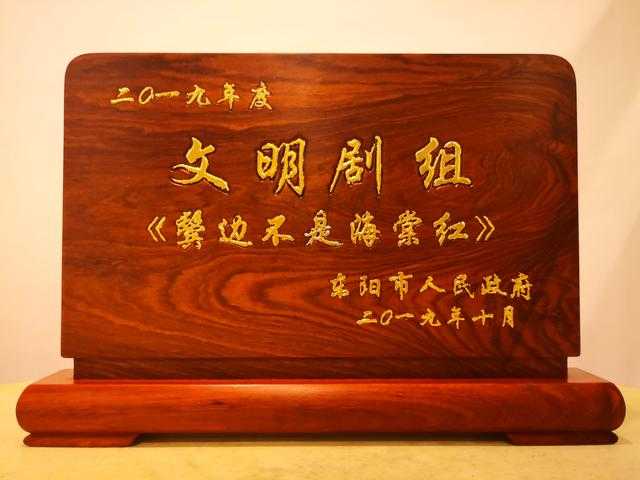 二〇一九年度
文明剧组
《鬓边不是海棠红》
东阳市人民政府
二〇一九年十月